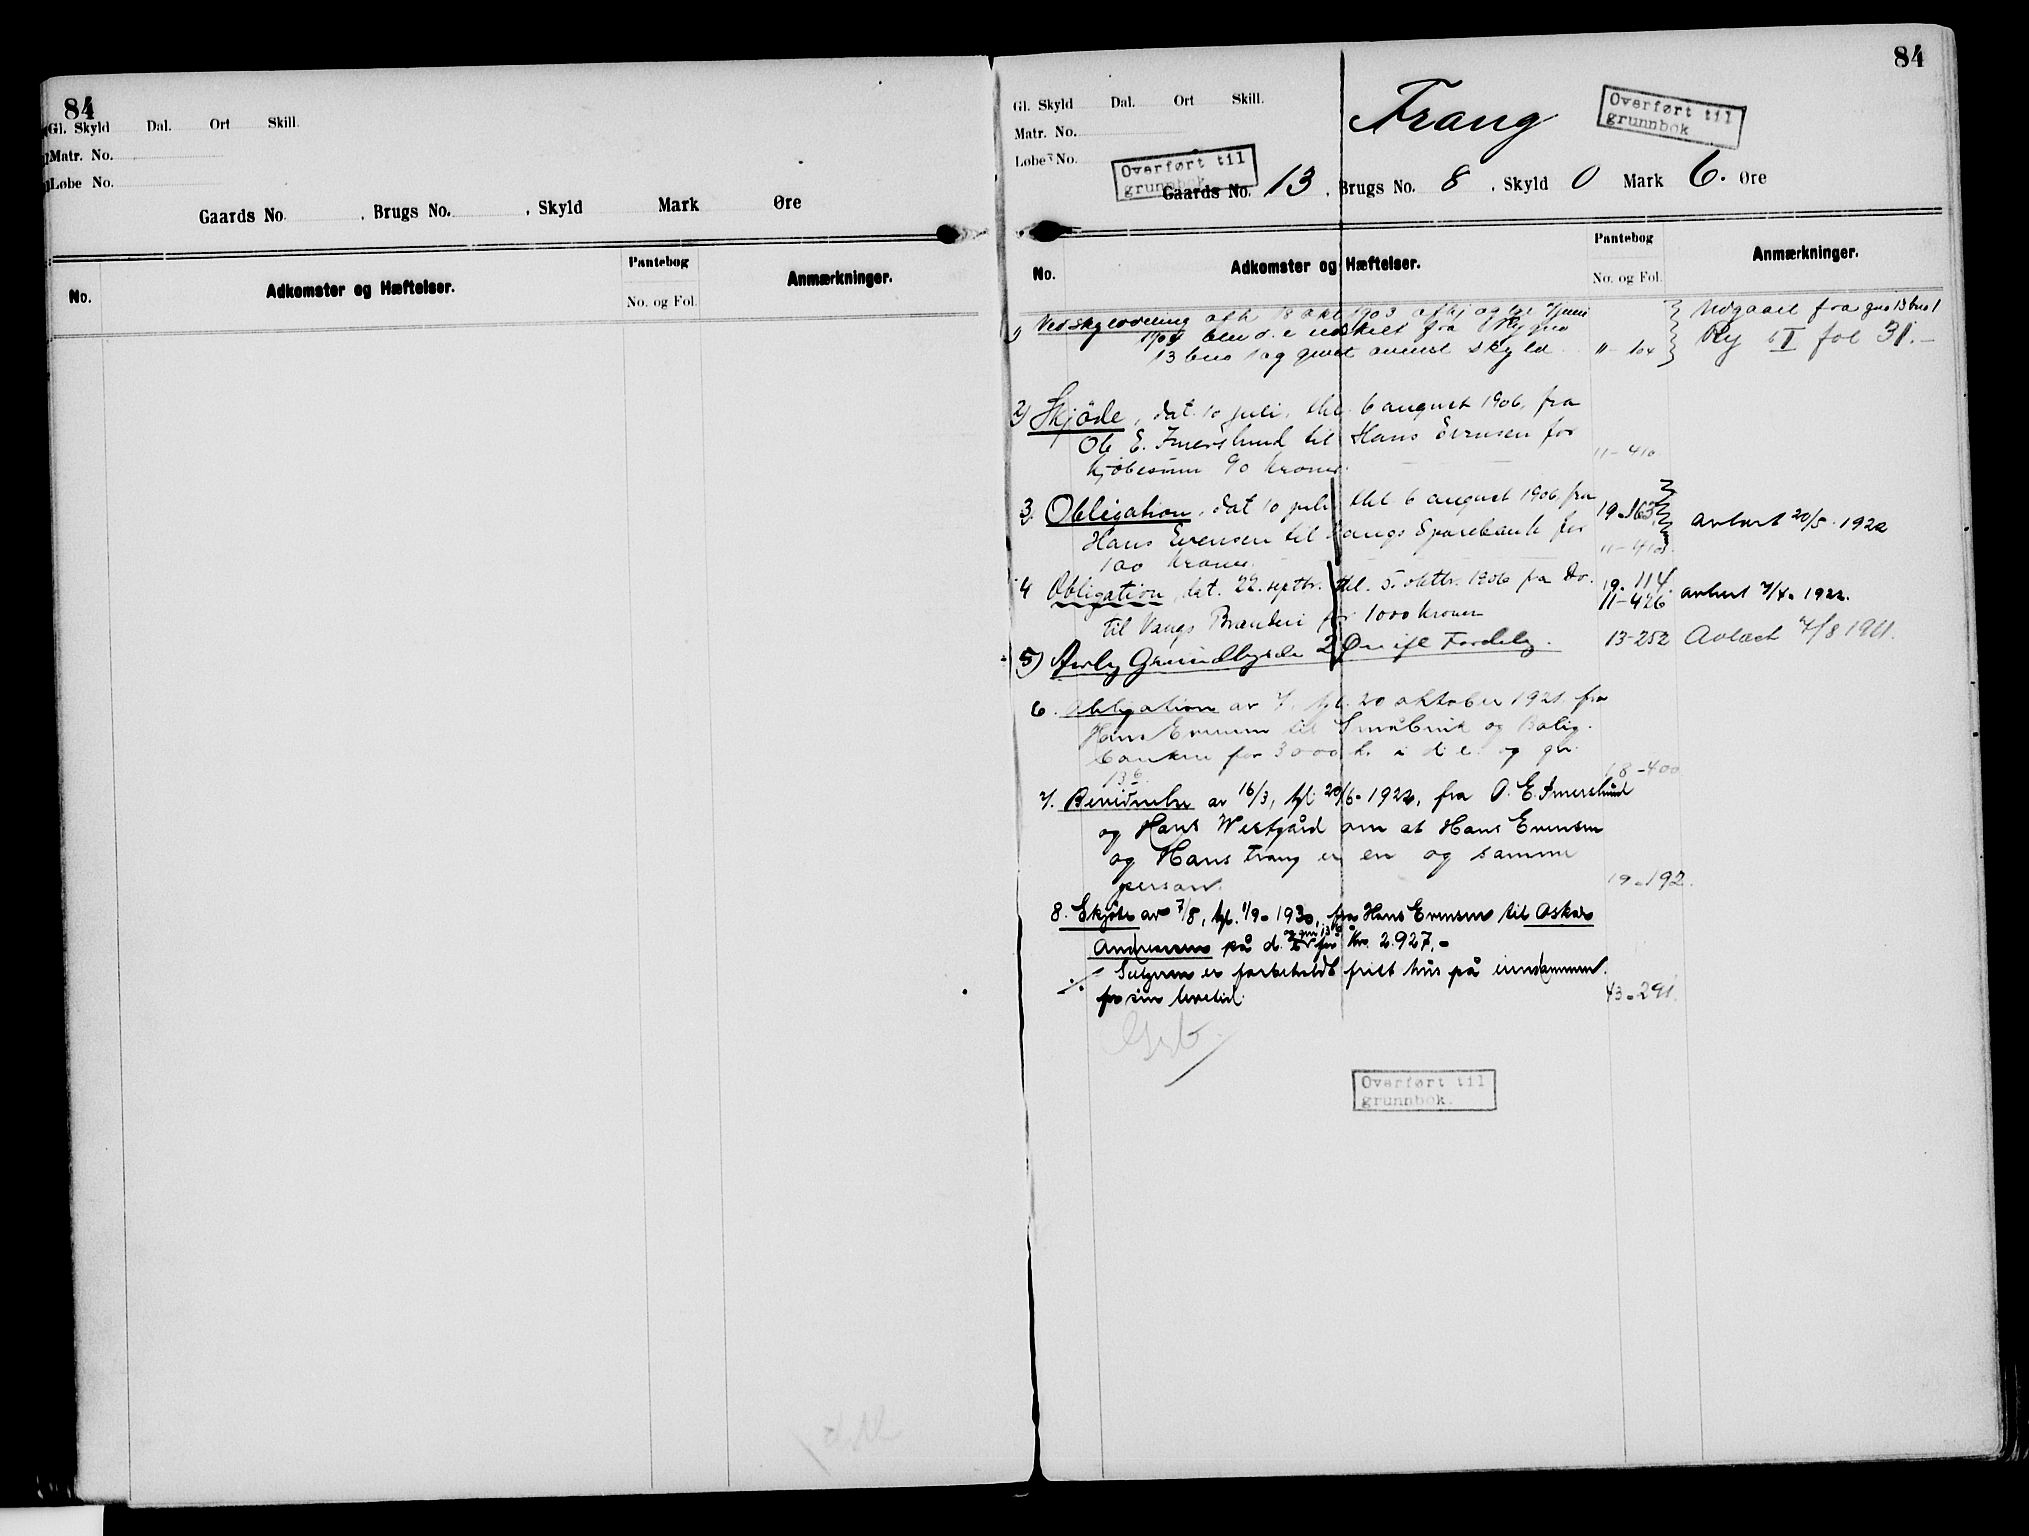 84
Gl. Skyld Dal. Ort Skill.
Matr. No.
Løbe No.
Gaards No. , Brugs No. , Skyld Mark Øre
No.
Adkomster og Hæftelser.
Pantebog
No. og Fol.
Anmærkninger.
84
Gl. Skyld Dal. Ort Skill.
Matr. No.
Løbe No.
Frang
Overført til
grunnbok
Overført til
grunnbok
Gaards No. 13 , Brugs No. 8 , Skyld 0 Mark 6. Øre
No.
Adkomster og Hæftelser.
Pantebog
No. og Fol.
Anmærkninger.
1) Ved skyldeling afh 18 okt 1903 afhj og juni
1904 blev d. e udskilt fra gno
13 bno 1 og givet anført skyld. 11-104
Udgaaet fra gno 13 bno 1
Reg II fol 31.-
2) Skjøde, dat. 10 juli, thl. 6 august 1906, fra
Ole E. Imerslund til Hans Evensen for
kjøbesum 90 kroner. 11-410
3. Obligation, dat 10 juli thl 6 august 1906, fra
Hans Evensen til Vangs Sparebank for
100 kroner. 11-410
19-163. avlyst 20/5-1922
4 Obligation, dat. 22. septbr. thl. 5. oktbr. 1906 fra do.
til Vangs Brænderi for 1000 kroner
19-114. 11-426 avlyst 7/4-1922.
5) Avløs Grundbyrde 2 Øre ifl Fordelg. 13-252 Avlæst 7/8 1911.
6. Obligation av 7, tgl. 20 oktober 1921 fra
Hans Evensen til Småbruk og Bolig-
banken for 3000 kr i d. e. og gnr.
13 6. 18-400
7. Bevidnelse av 16/3, tgl. 20/6-1922, fra O. E. Imerslund
og Hans Westgård om at Hans Evensen
og Hans Frang er en og samme
person. 19-192.
8. Skjøte av 7/8, tgl. 1/9-1930, fra Hans Evensen til Oskar
Andreassen på d. e. for Kr. 2927,-
Selgeren er forbeholdt fritt hus på eiendommen
for sin levetid. 43-291.
Overført til
grunnbok.